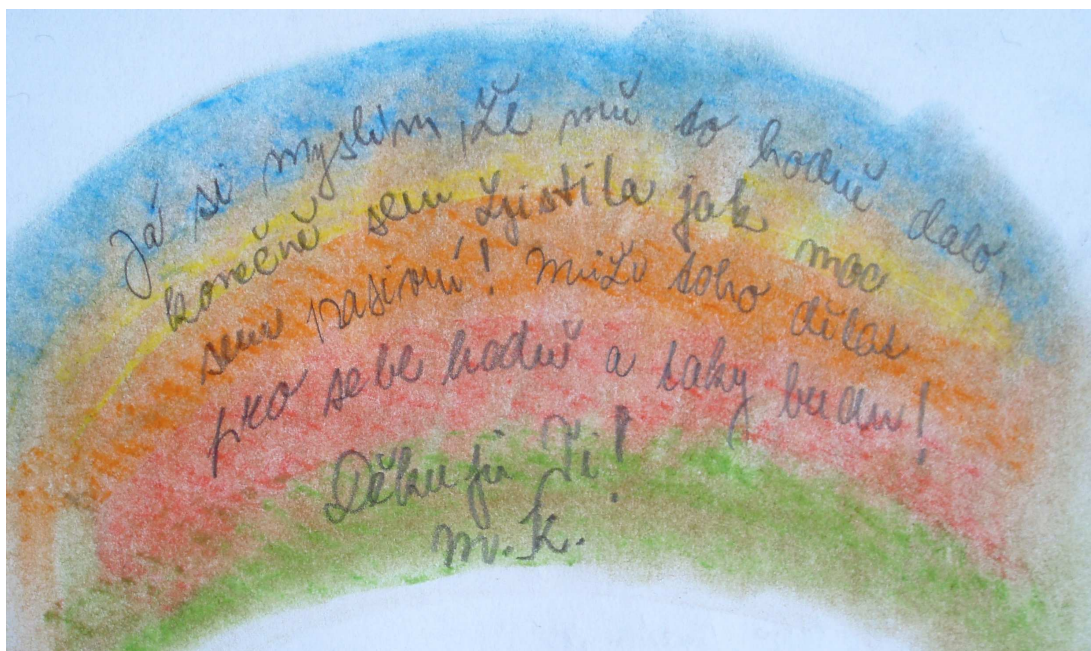 Já si myslím, že mě to hodně dalo,
konečně sem zjistila jak moc
sem pasivní! Můžu toho dělat
pro sebe hodně a taky budu!
Děkuju Ti!
M.K.